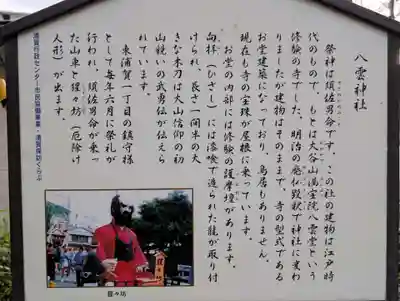 八雲神社
祭神は須佐男命です。この社の建物は江戸時
代のもので、もとは大谷山満宝院八雲堂という
修験の寺でした。明治の廃仏毀釈で神社に変わ
りましたが建物はそのままで、寺の型式である
お堂建築になっており、鳥居もありません。
現在も寺の宝珠が屋根に乗っています。
お堂の内部には修験の護摩壇があります。
向拝(ひさし)には漆喰で造られた龍が取り付
けられ、長さ一間半の大
きな木刀は大山信仰の初
山競いの武勇伝が伝えら
れています。
東浦賀一丁目の鎮守様
として毎年六月に祭礼が
行われ、須佐男命が乗っ
た山車と猩々坊(厄除け
人形)が出ます。
猩々坊
浦賀行政センター市民協働事業・浦賀探訪くらぶ